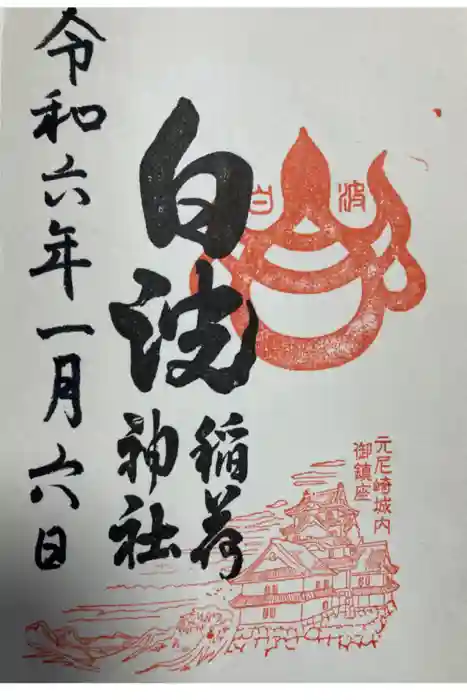 元尼崎城内
御鎮座
白波
白波
稲荷
神社
令和六年一月六日